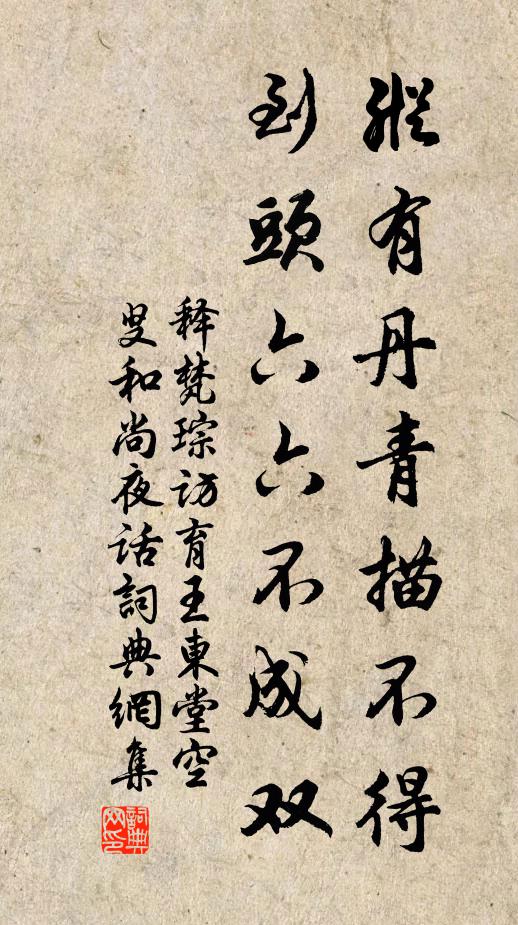 縱有丹青描不得
到頭六六不成双
释梵琮访育王東堂空
叟和尚夜话詞典網集
詞典
网印